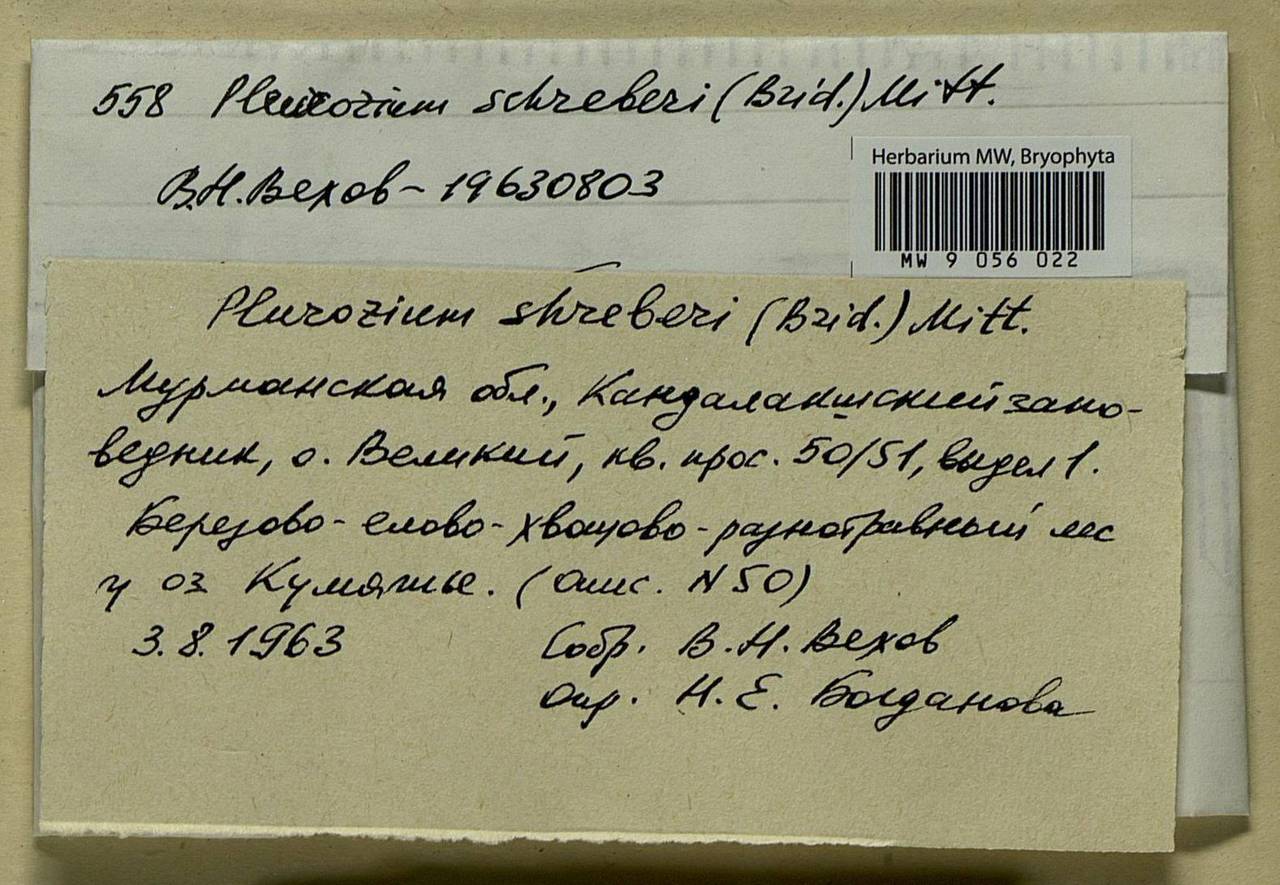 558 Pleurozium schreberi (Brid.) Mitt.
В.Н. Вехов - 19630803
Herbarium MW, Bryophyta
MW 9 056 022
Plurozium shreberi (Brid.) Mitt.
Мурманская обл., Кандалакшский запо-
ведник, о. Великий, кв. прос. 50/51, выдел 1.
Березово-елово-хвощово-разнотравный лес
у оз Кумяжье. (Опис. N 50)
3.8.1963 Собр. В.Н. Вехов
Опр. Н.Е. Богданова